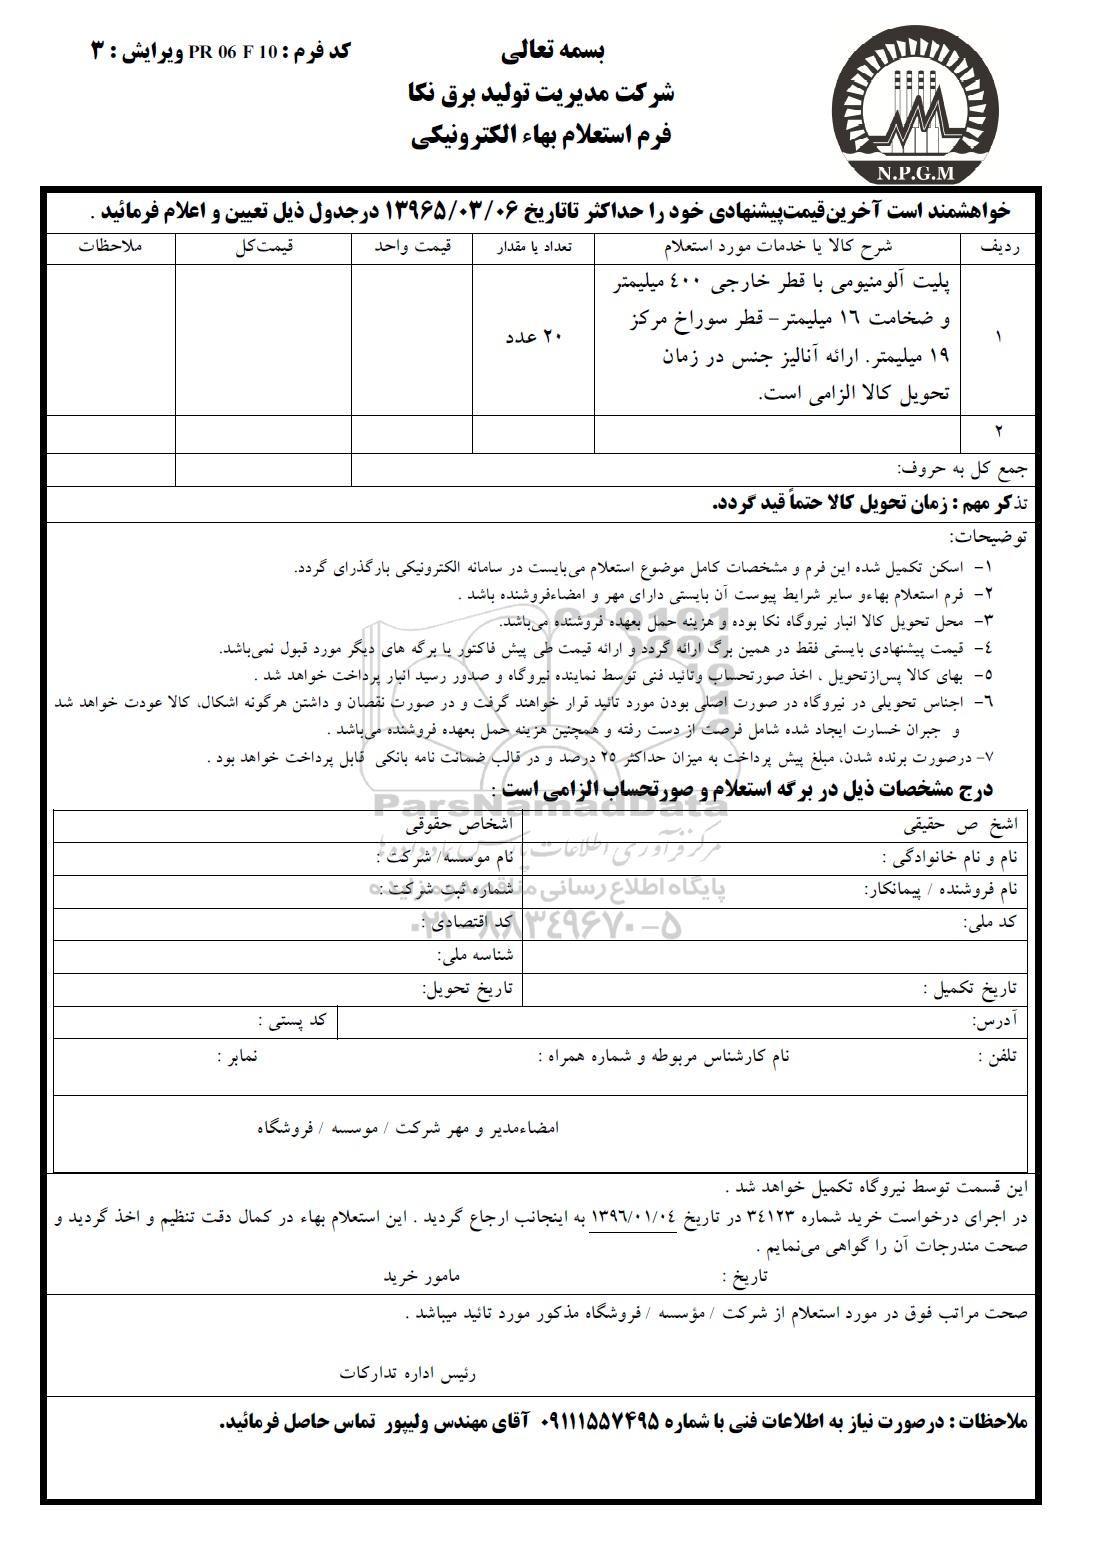 بسمه تعالی
کد فرم : PR 06 F 10 ویرایش : ۳
شرکت مدیریت تولید برق نکا
فرم استعلام بهاء الکترونیکی
N.P.G.M
خواهشمند است آخرین‌قیمت‌پیشنهادی خود را حداکثر تاتاریخ ۱۳۹۶۵/۰۳/۰۶ درجدول ذیل تعیین و اعلام فرمائید .
ردیف شرح کالا یا خدمات مورد استعلام تعداد یا مقدار قیمت واحد قیمت‌کل ملاحظات
پلیت آلومنیومی با قطر خارجی ۴۰۰ میلیمتر
و ضخامت ۱۶ میلیمتر- قطر سوراخ مرکز
۱ ۲۰ عدد
۱۹ میلیمتر. ارائه آنالیز جنس در زمان
تحویل کالا الزامی است.
۲
جمع کل به حروف:
تذکر مهم : زمان تحویل کالا حتماً قید گردد.
توضیحات:
۱- اسکن تکمیل شده این فرم و مشخصات کامل موضوع استعلام می‌بایست در سامانه الکترونیکی بارگذرای گردد.
۲- فرم استعلام بهاءو سایر شرایط پیوست آن بایستی دارای مهر و امضاءفروشنده باشد .
۳- محل تحویل کالا انبار نیروگاه نکا بوده و هزینه حمل بعهده فروشنده می‌باشد.
۴- قیمت پیشنهادی بایستی فقط در همین برگ ارائه گردد و ارائه قیمت طی پیش فاکتور یا برگه های دیگر مورد قبول نمی‌باشد.
۵- بهای کالا پس‌ازتحویل ، اخذ صورتحساب وتائید فنی توسط نماینده نیروگاه و صدور رسید انبار پرداخت خواهد شد .
۶- اجناس تحویلی در نیروگاه در صورت اصلی بودن مورد تائید قرار خواهند گرفت و در صورت نقصان و داشتن هرگونه اشکال، کالا عودت خواهد شد
و جبران خسارت ایجاد شده شامل فرصت از دست رفته و همچنین هزینه حمل بعهده فروشنده می‌باشد .
۷- درصورت برنده شدن، مبلغ پیش پرداخت به میزان حداکثر ۲۵ درصد و در قالب ضمانت نامه بانکی قابل پرداخت خواهد بود .
درج مشخصات ذیل در برگه استعلام و صورتحساب الزامی است :
ParsNamadData
اشخ ص حقیقی اشخاص حقوقی
نام و نام خانوادگی : نام موسسه/ شرکت :
نام فروشنده / پیمانکار: شماره ثبت شرکت :
پایگاه اطلاع رسانی مناقصه و مزایده
کد ملی: کد اقتصادی :
۰۲۱-۸۸۳۴۹۶۷۰-۵
شناسه ملی:
تاریخ تکمیل : تاریخ تحویل:
آدرس: کد پستی :
تلفن : نام کارشناس مربوطه و شماره همراه : نمابر :
امضاءمدیر و مهر شرکت / موسسه / فروشگاه
این قسمت توسط نیروگاه تکمیل خواهد شد .
در اجرای درخواست خرید شماره ۳۴۱۲۳ در تاریخ ۱۳۹۶/۰۱/۰۴ به اینجانب ارجاع گردید . این استعلام بهاء در کمال دقت تنظیم و اخذ گردید و
صحت مندرجات آن را گواهی می‌نمایم .
تاریخ : مامور خرید
صحت مراتب فوق در مورد استعلام از شرکت / مؤسسه / فروشگاه مذکور مورد تائید میباشد .
رئیس اداره تدارکات
ملاحظات : درصورت نیاز به اطلاعات فنی با شماره ۰۹۱۱۱۵۵۷۴۹۵ آقای مهندس ولیپور تماس حاصل فرمائید.